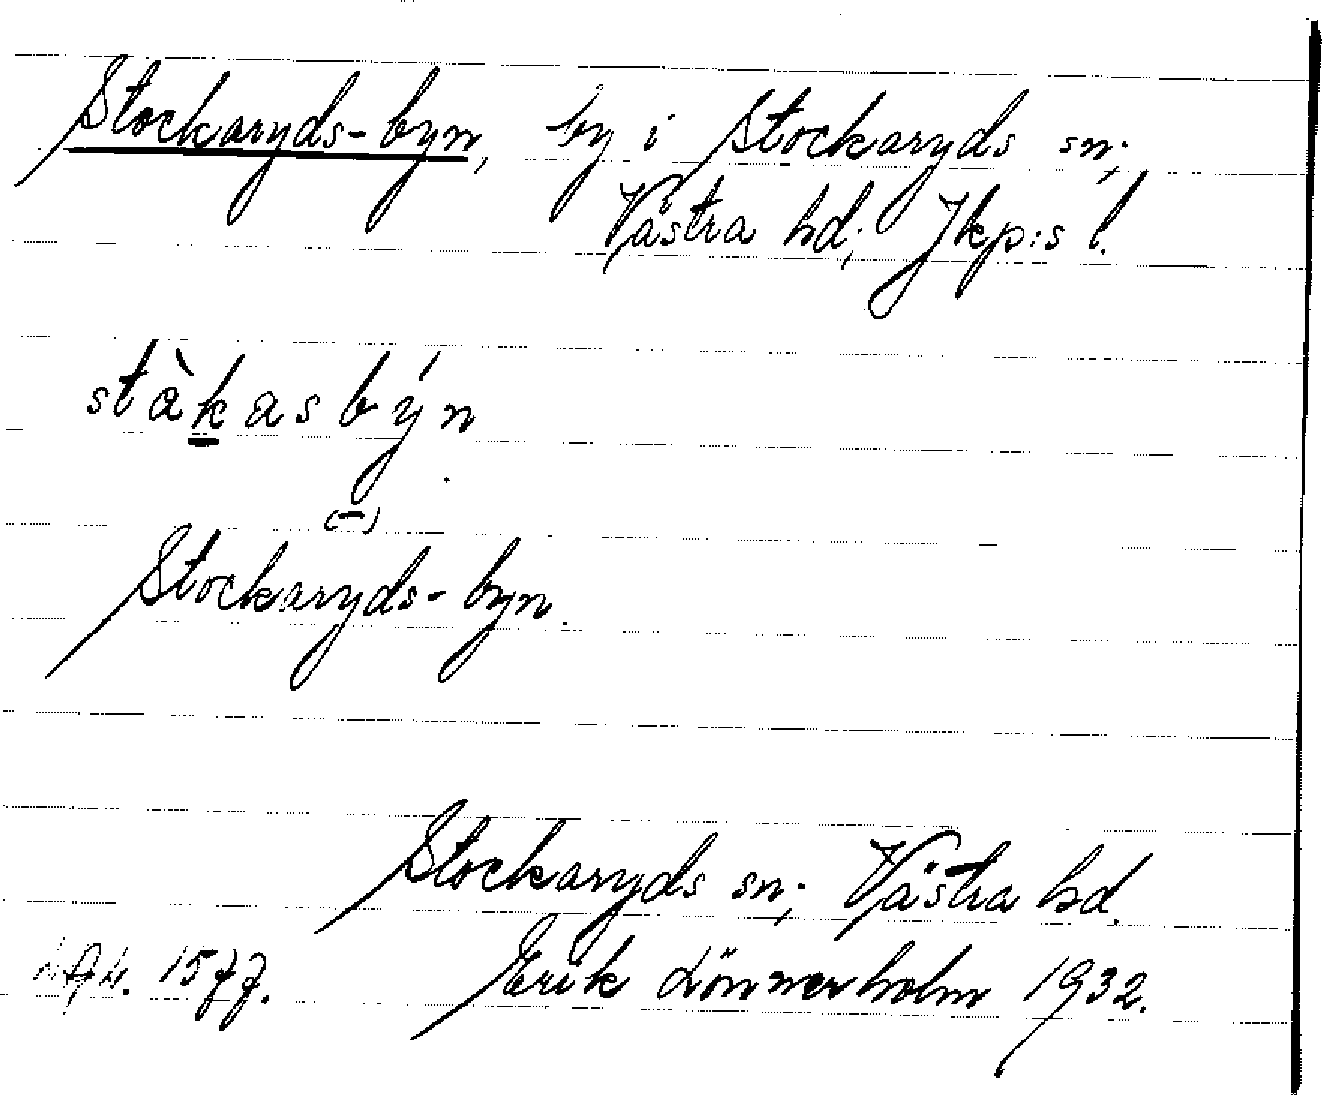 Stockaryds-byn, by i Stockaryds sn;
Västra hd; Jkp:s l.
stàkasbýn
(-)
Stockaryds-byn.
Stockaryds sn; Västra hd.
1577. Erik Lönnerholm 1932.